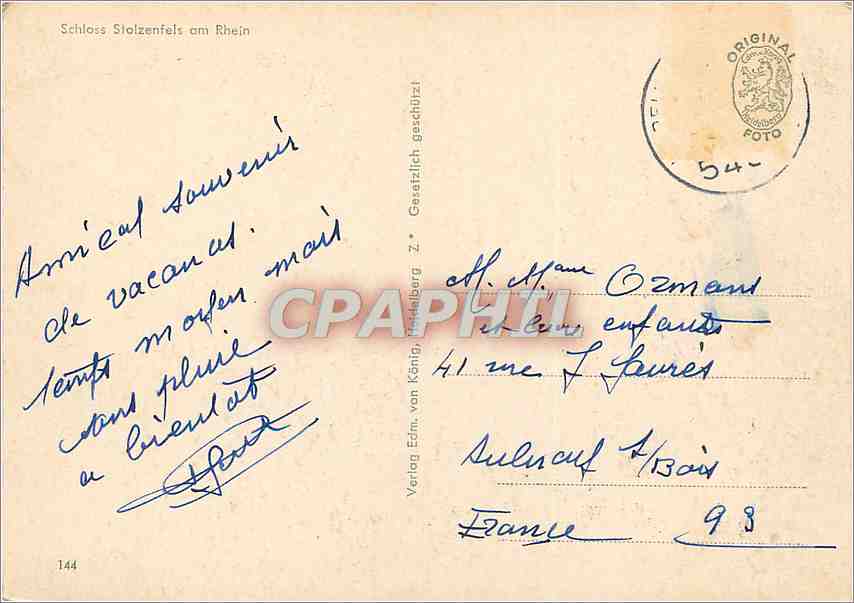 Schloss Stolzenfels am Rhein
ORIGINAL
Heidelberg
FOTO
54
Amical souvenir
de vacances.
temps moyen mais
sans pluie
a bientot
M. Mme Ormans
et leurs enfants
41 rue J Jaurès
Aulnay s/Bois
France 93
Verlag Edm. von König, Heidelberg Z * Gesetzlich geschützt
CPAPHIL
144